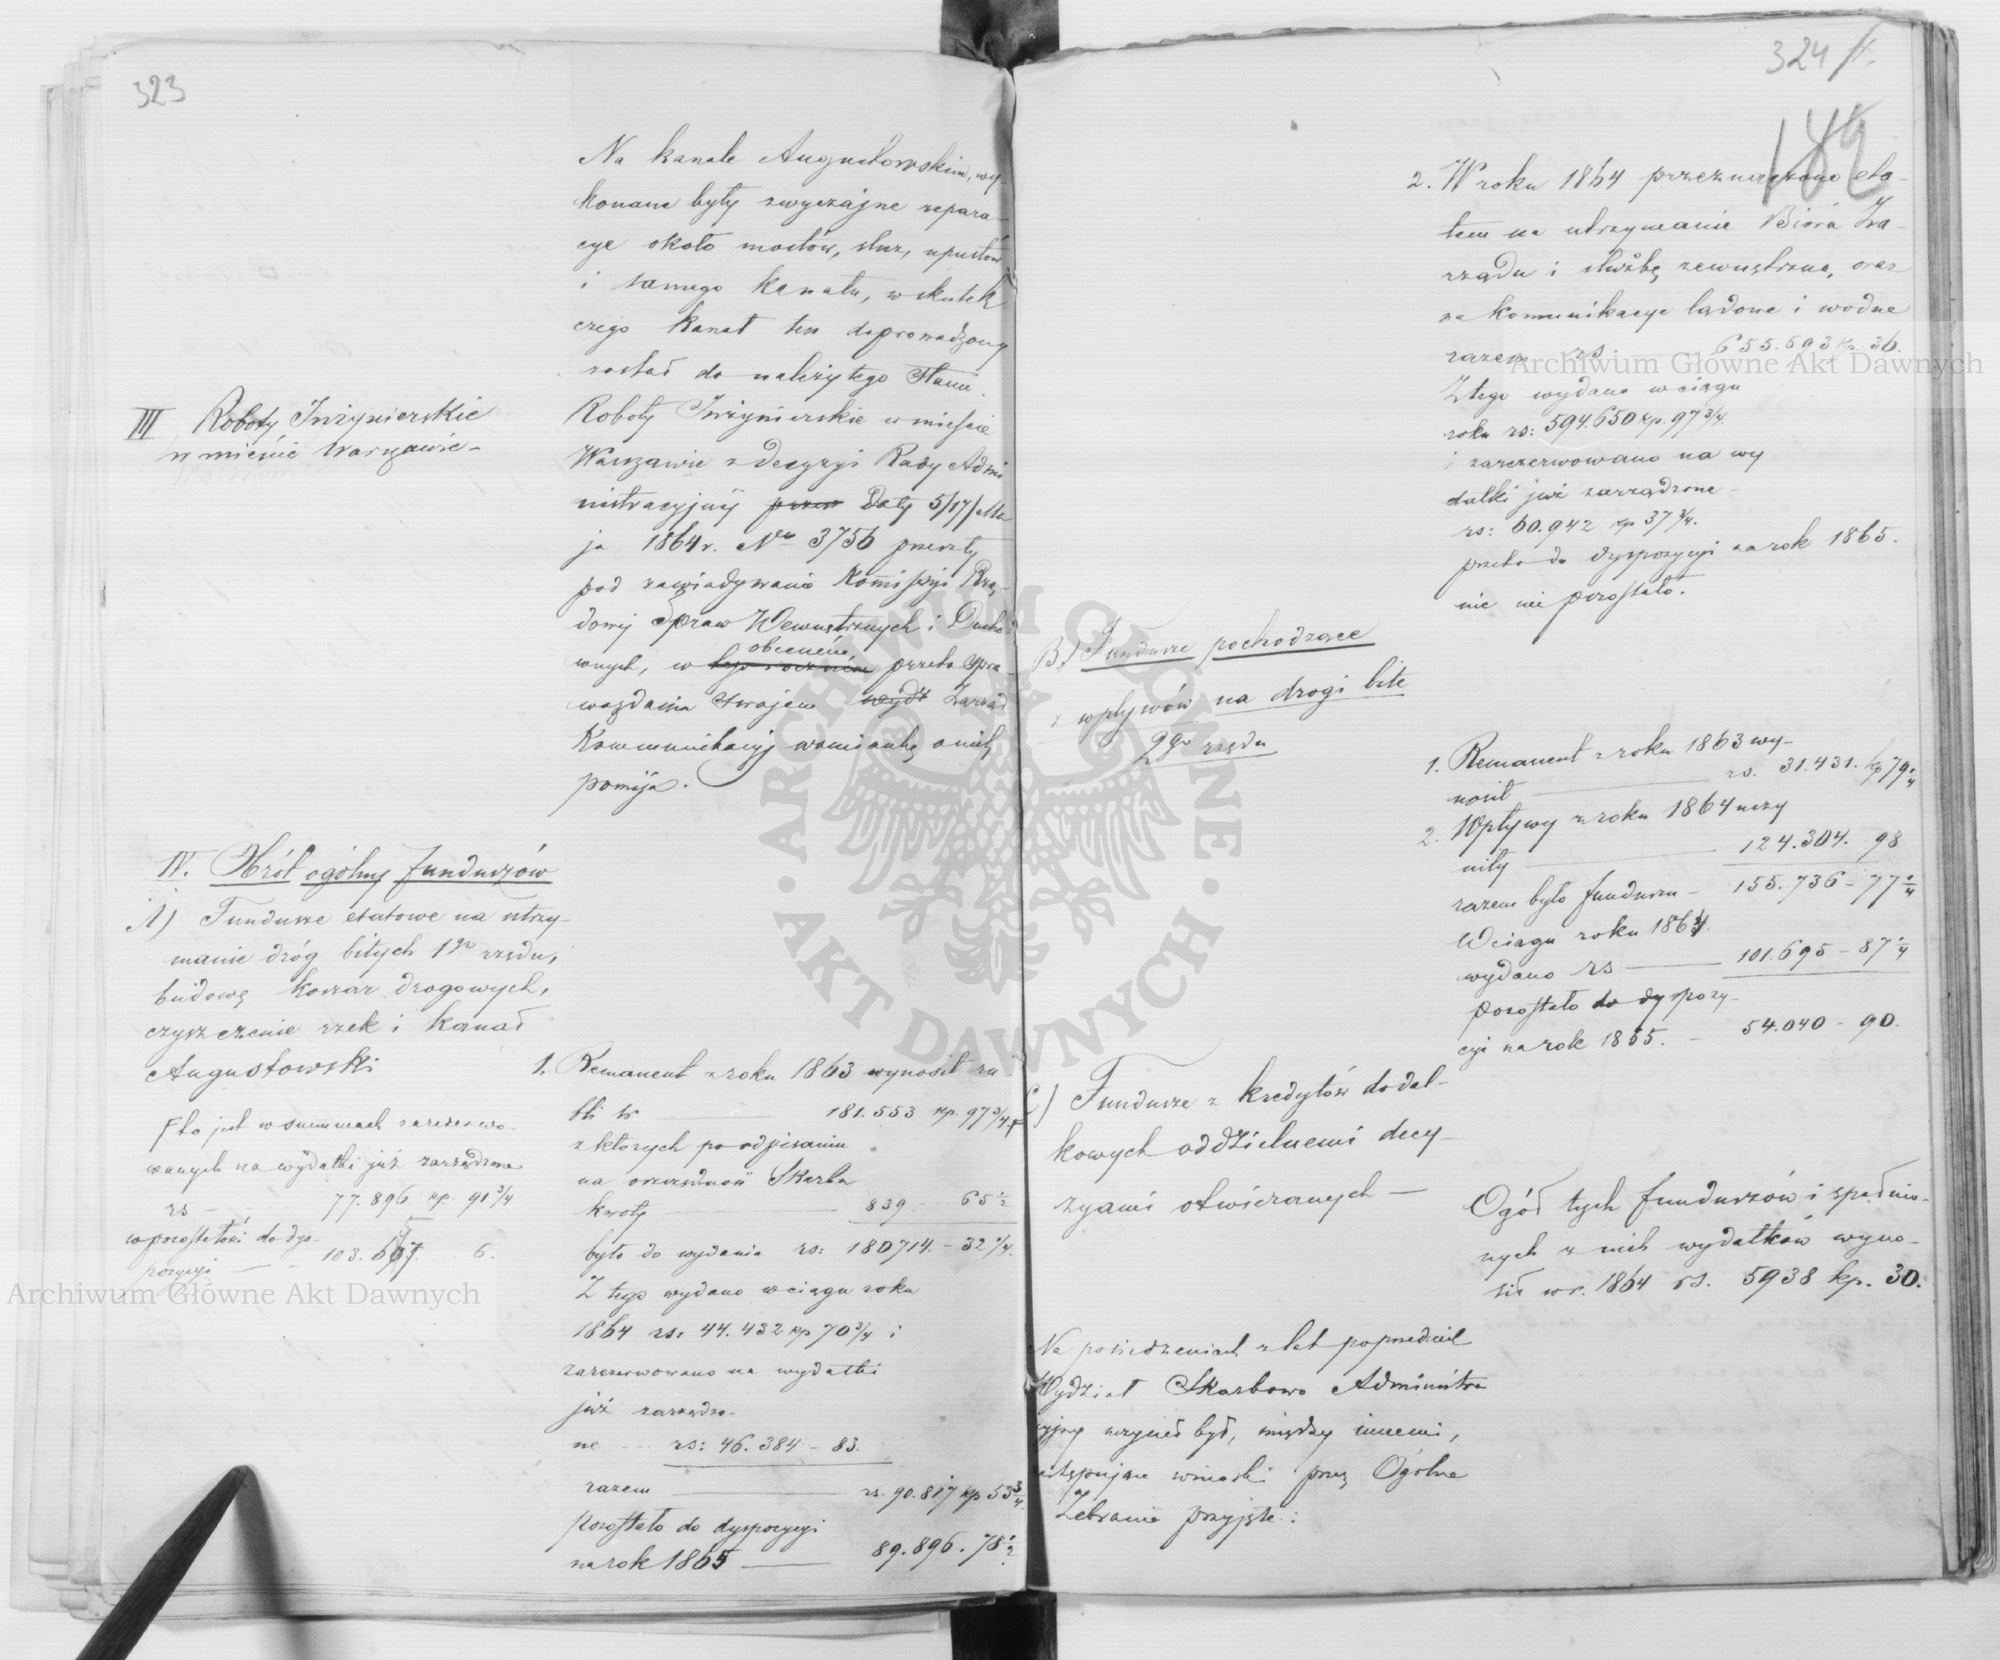 323
Na kanale Augustowskim, wy-
konane były zwyczajne repara-
cye około mostów, sluz, upustów
i samego kanału, wskutek
czego kanał ten doprowadzony
został do należytego stanu.
III Roboty Inżynierskie
w mieście Warszawie -
Roboty Inżynierskie w mieście
Warszawie z decyzyi Rady Admi
nistracyjnéj przez Daty 5/17 Ma
ja 1864 r. No 3756 przeszły
pod zawiadywanie Kommissyi Rzą-
dowéj Spraw Wewnętrznych i Ducho
wnych, w obecném, przeto spra
wozdaniu swojém Zarząd
Kommunikacyj wzmiankę o nich
pomija.
IV. Obrót ogólny funduszów
A) Fundusze etatowe na utrzy-
manie dróg bitych 1go rzędu,
budowę koszar drogowych,
czyszczenie rzek i kanał
Augustowski
1. Remanent z roku 1863 wynosił ru
bli sr 181.553 kp. 97 3/4 F
z których po odpisaniu
na oszczędność Skarbu
kwoty 839 65 1/2
było do wydania rs: 180714. - 32 1/4.
Z tego wydano w ciągu roku
1864 rs: 44.432 kp 70 3/4 i
zarezerwowano na wydatki
już zarządzo-
ne - rs: 46.384 - 83.
razem rs. 90.817 kp 53 3/4.
Pozostało do dyspozycyi
na rok 1865 89.896. 78 1/2
F to jest w summach zarezerwo-
wanych na wydatki już zarządzone
rs - 77.896 kp. 91 3/4
w pozostałości do dys-
pozycyi 103.657 6.
324
182
2. W roku 1864 przeznaczono eta-
tem na utrzymanie Biura Za-
rządu i służbę zewnętrzną, oraz
na komunikacye lądowe i wodne
razem rs. 655.593 kp. 36.
Z tego wydano w ciągu
roku rs: 594.650 kp. 97 3/4.
i zarezerwowano na wy
datki już zarządzone -
rs: 60.942 kp 37 3/4.
przeto do dyspozycyi na rok 1865.
nic nie pozostało.
B) Fundusze pochodzące
z wpływów na drogi bite
2go rzędu
1. Remanent z roku 1863 wy-
nosił rs. 31.431. kp 79 1/4
2. Wpływy z roku 1864 uczy
niły 124.304. 98
razem było funduszu - 155.736 - 77 1/4
W ciągu roku 1864.
wydano rs 101.695 - 87 1/4
pozostało do dyspozy-
cyi na rok 1865. - 54.040 - 90.
C) Fundusze z kredytów dodat-
kowych oddzielnemi decy-
zyami otwieranych -
Ogół tych funduszów i spełnio-
nych z nich wydatków wyno-
sił w r. 1864 rs. 5938 kp. 30.
Na posiedzeniach z lat poprzednich
Wydział Skarbowo Administra
cyjny uczynił był, między innemi,
następujące wnioski przez Ogólne
Zebranie przyjęte:
Archiwum Główne Akt Dawnych
Archiwum Główne Akt Dawnych
ARCHIWUM GŁÓWNE · AKT DAWNYCH ·